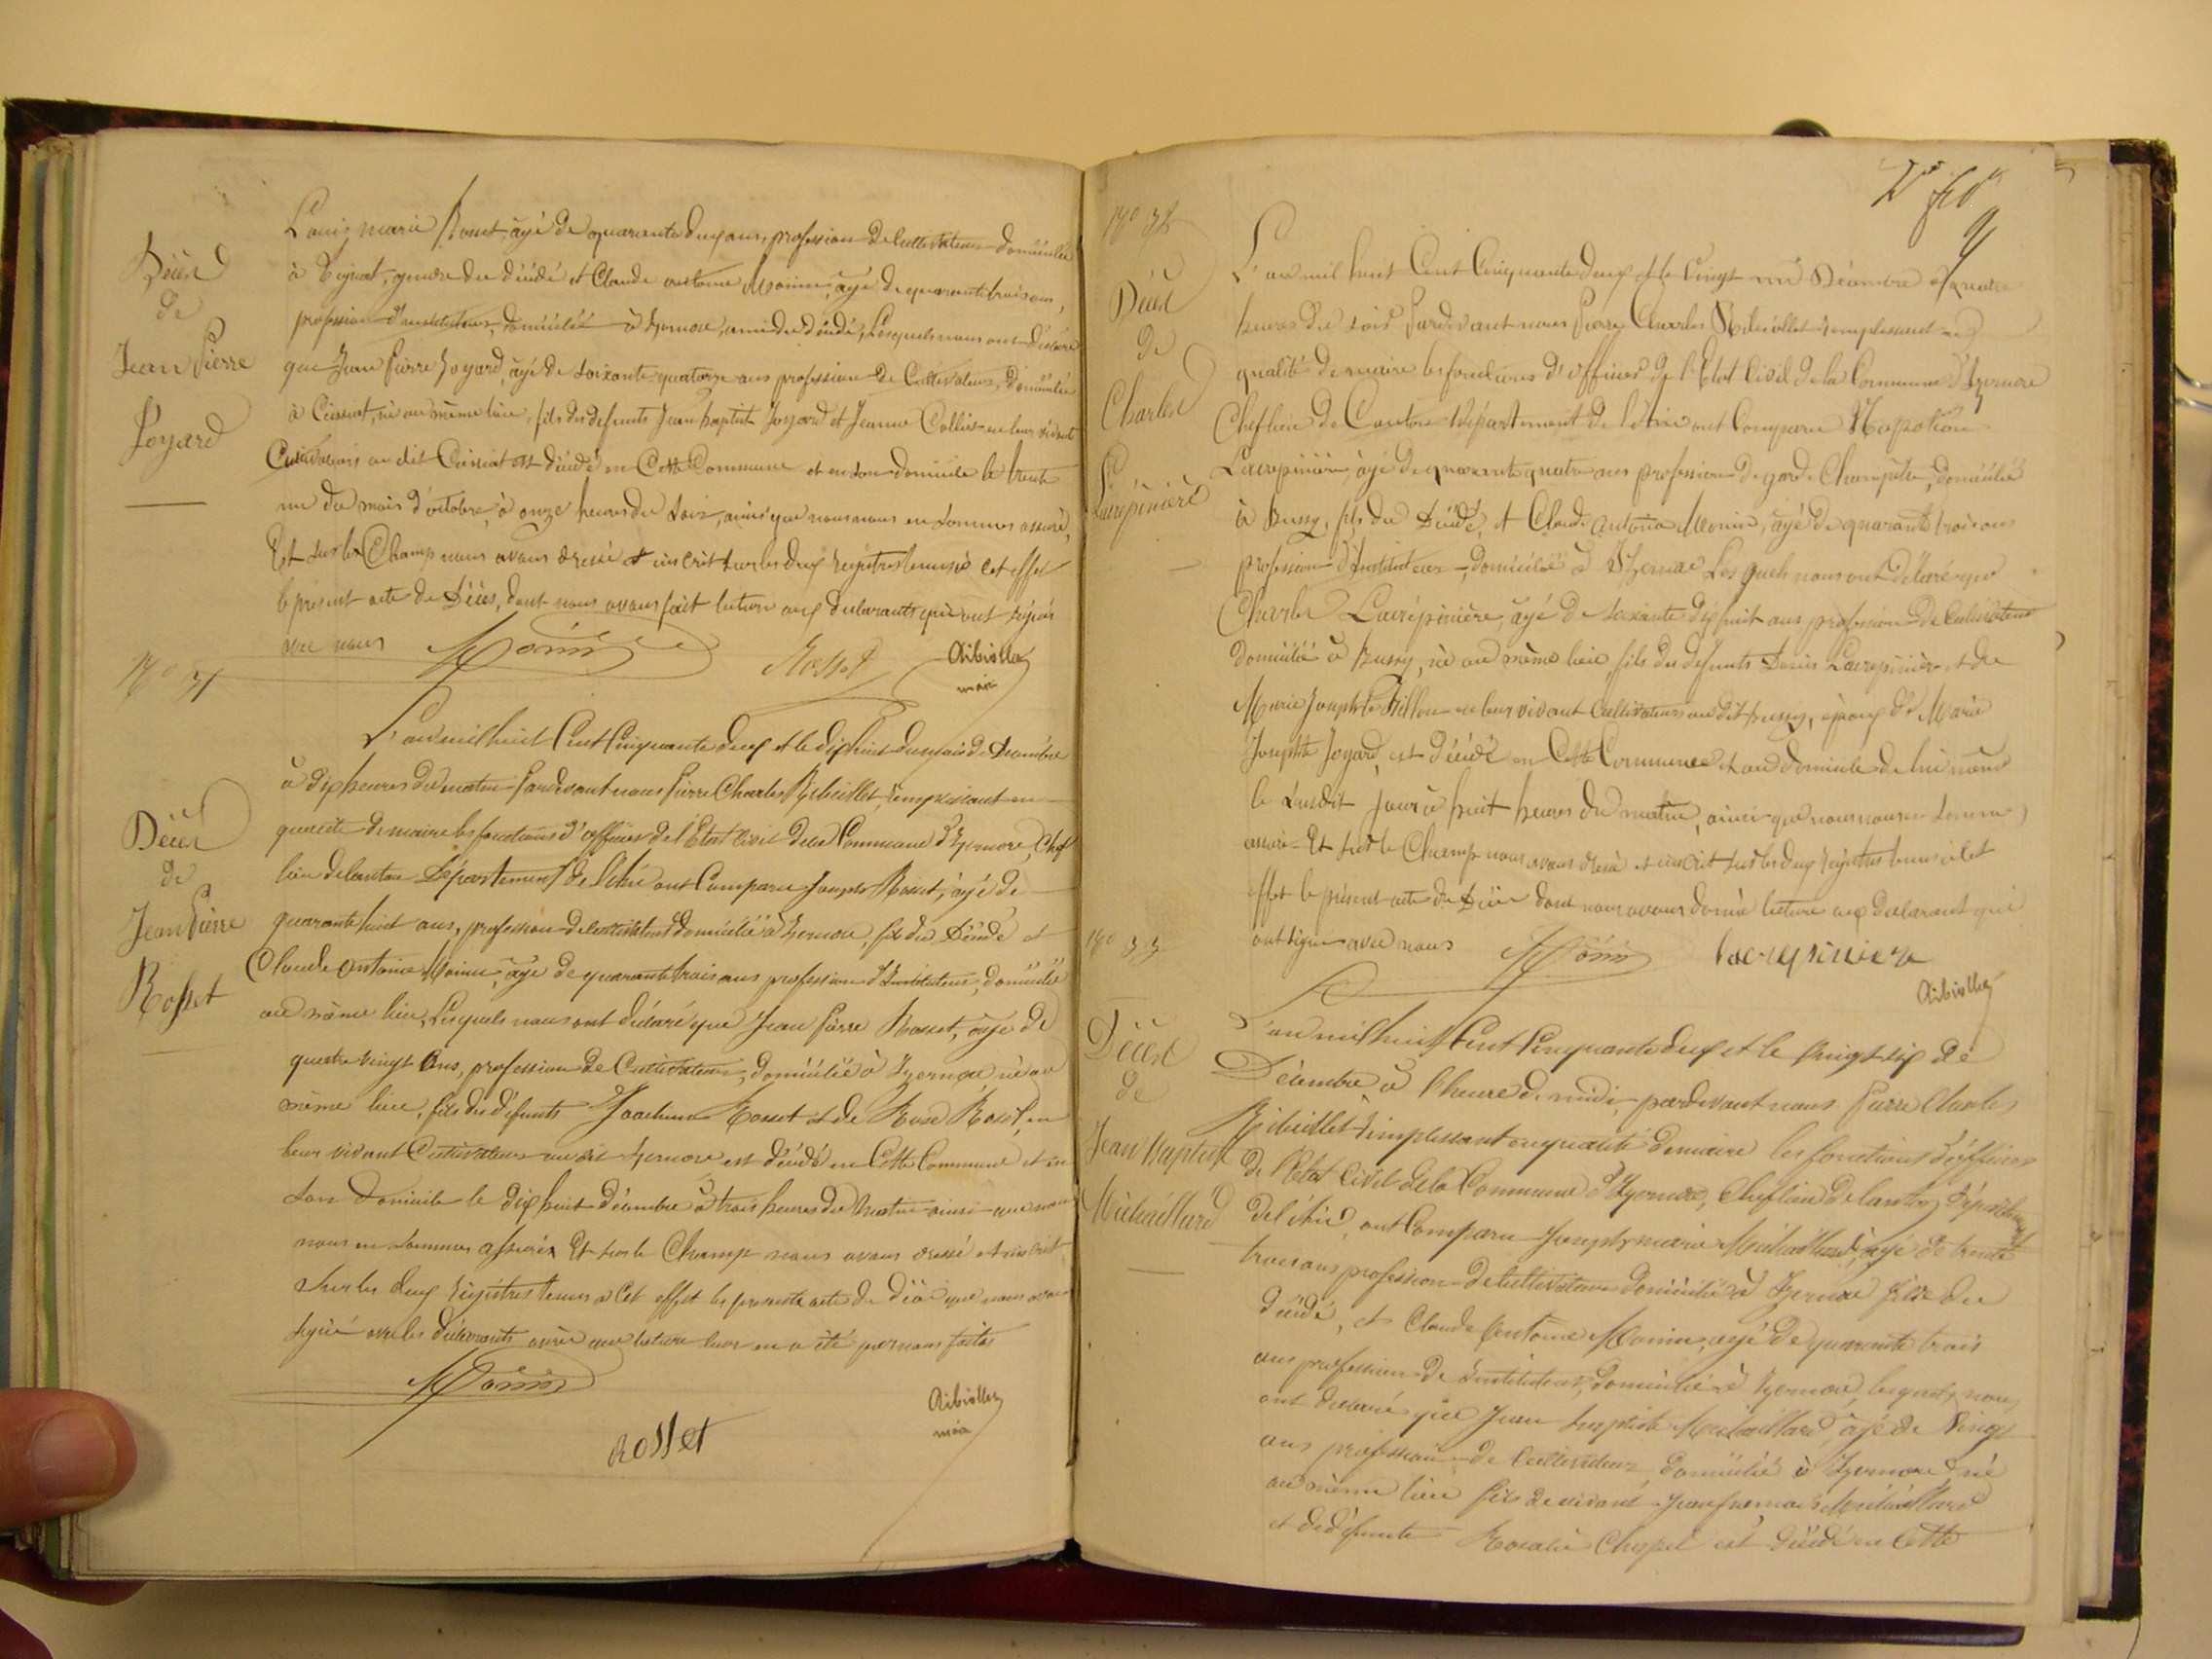 Décès
de
Jean Pierre
Joyard
Louis marie Rosset, âgé de quarante deux ans, profession de cultivateur domicilié
à gendre du décédé et Claude antoine Monin, âgé de quarante trois ans,
profession d'instituteur, domicilié à Izernore, ami du décédé, Lesquels nous ont déclaré
que Jean Pierre Joyard, âgé de soixante quatorze ans profession de Cultivateur, domicilié
à Ceissiat, né au même lieu, fils des defunts Jean baptiste Joyard et Jeanne Collier en leur vivant
Cultivateurs au dit Ceissiat est décédé en Cette Commune et en son domicile le trente
un du mois d'octobre, à onze heures du soir, ainsi que nous nous en sommes assuré,
Et sur le Champ nous avons dressé et inscrit sur les deux registres tenus à cet effet
le présent acte de Décès, dont nous avons fait lecture aux declarants qui ont signés
avec nous Monin Rosset Ribiollet
maire
No 31
Décès
de
Jean Pierre
Rosset
L'an mil huit Cent Cinquante deux et le dix huit du mois de Decembre
à dix heures du matin Pardevant nous Pierre Charles Ribiollet, remplissant en
qualité de maire les fonctions d'officier de l'Etat Civil de la Commune d'Izernore, Chef
lieu de Canton Département de l'Ain ont Comparu Joseph Rosset, âgé de
quarante huit ans, profession de cultivateur domicilié à Izernore, fils du Décédé et
Claude Antoine Monin, âgé de quarante trois ans profession d'Instituteur, domicilié
au même lieu, Lesquels nous ont déclaré que Jean Pierre Rosset, âgé de
quatre vingt Ans, profession de Cultivateur, domicilié à Izernore né au
même lieu, fils des défunts Joachim Rosset et de Rose Rosset, en
leur vivant Cultivateurs au dit Izernore est décédé en Cette Commune et en
son Domicile le dix huit décembre à trois heures du Matin ainsi que nous
nous en sommes assurés Et sur le Champ nous avons dressé et inscrit
sur les deux registres tenus à Cet effet le present acte de décès que nous avons
signé avec les déclarants après que lecture leur en a été par nous faite
Monin
Rosset
Ribiollet
maire
2e fo
9
No 32
Décès
de
Charles
Lacrépinière
L'an mil huit Cent Cinquante deux et le vingt un Décembre à quatre
heures du soir Pardevant nous Pierre Charles Ribiollet remplissant en
qualité de maire les fonctions d'officier de l'Etat Civil de la Commune d'Izernore
Chef lieu de Canton Département de l'Ain ont Comparu Napoléon
Lacrepinière, âgé de quarante quatre ans profession de garde Champêtre, domicilié
à Bussy, fils du Décédé, et Claude Antoine Monin, âgé de quarante trois ans
profession d'Instituteur, domicilié à Izernore Lesquels nous ont déclaré que
Charles Lacrépinière, âgé de soixante dix huit ans profession de Cultivateur
domicilié à Bussy, né au même lieu, fils des defunts Denis Lacrepinière et de
Marie Josephte Billon en leur vivant Cultivateurs au dit Bussy, époux de Marie
Josephte Joyard, est décédé en Cette Commune et au domicile de lui même
le susdit jour à huit heures du matin, ainsi que nous nous en sommes
assuré Et sur le Champ nous avons dressé et inscrit sur les deux registres tenus à Cet
effet le présent acte de Décès dont nous avons donné lecture aux declarants qui
ont signé avec nous Monin lacrepiniere
Ribiollet
No 33
Décès
de
Jean Baptiste
Michaillard
L'an mil huit Cent Cinquante deux et le vingt six de
Décembre à l'heure de midi, pardevant nous Pierre Charles
Ribiollet remplissant en qualité de maire les fonctions d'officier
de l'Etat Civil de la Commune d'Izernore, Chef lieu de Canton Département
de l'Ain, ont Comparu Joseph marie Michaillard, âgé de trente
trois ans profession de Cultivateur domicilié à Izernore frère du
décédé, et Claude Antoine Monin, âgé de quarante trois
ans profession de Instituteur, domicilié à Izernore, lesquels nous
ont déclaré que Jean baptiste Michaillard, âgé de Vingt
ans profession de Cultivateur, domicilié à Izernore, né
au même lieu fils de vivant Jean francois Michaillard
et de défunte Rosalie Chapel est décédé en Cette